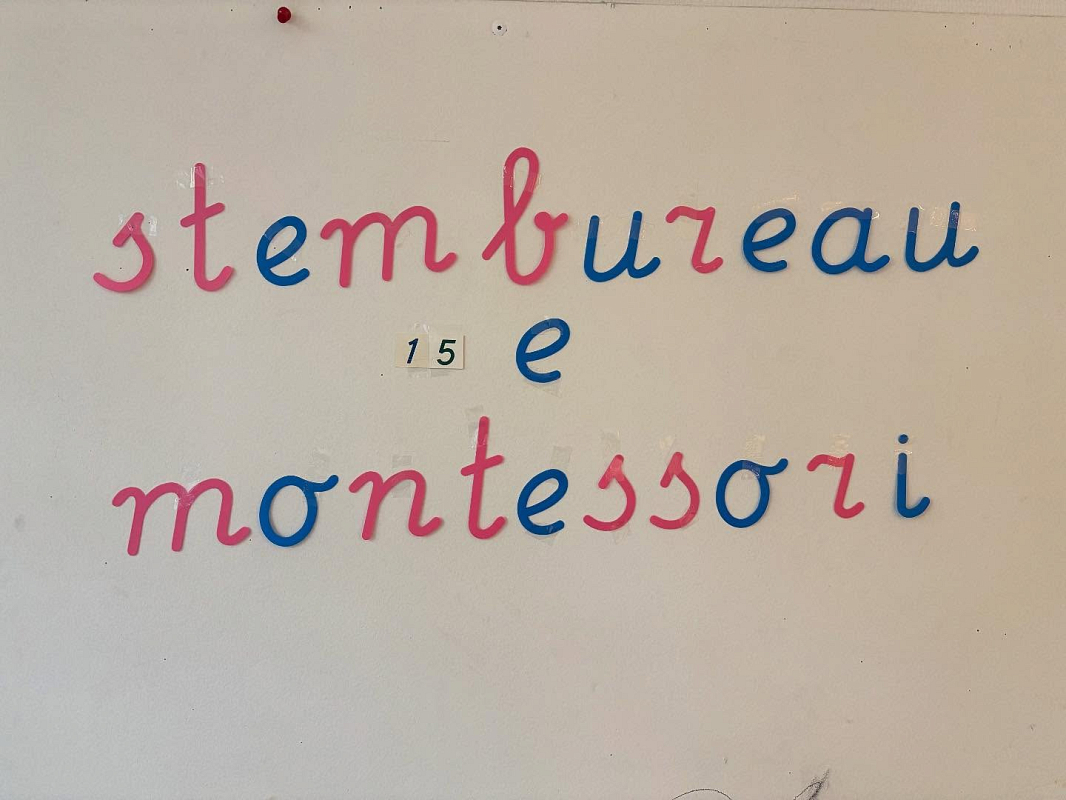 stembureau
15 e
montessori